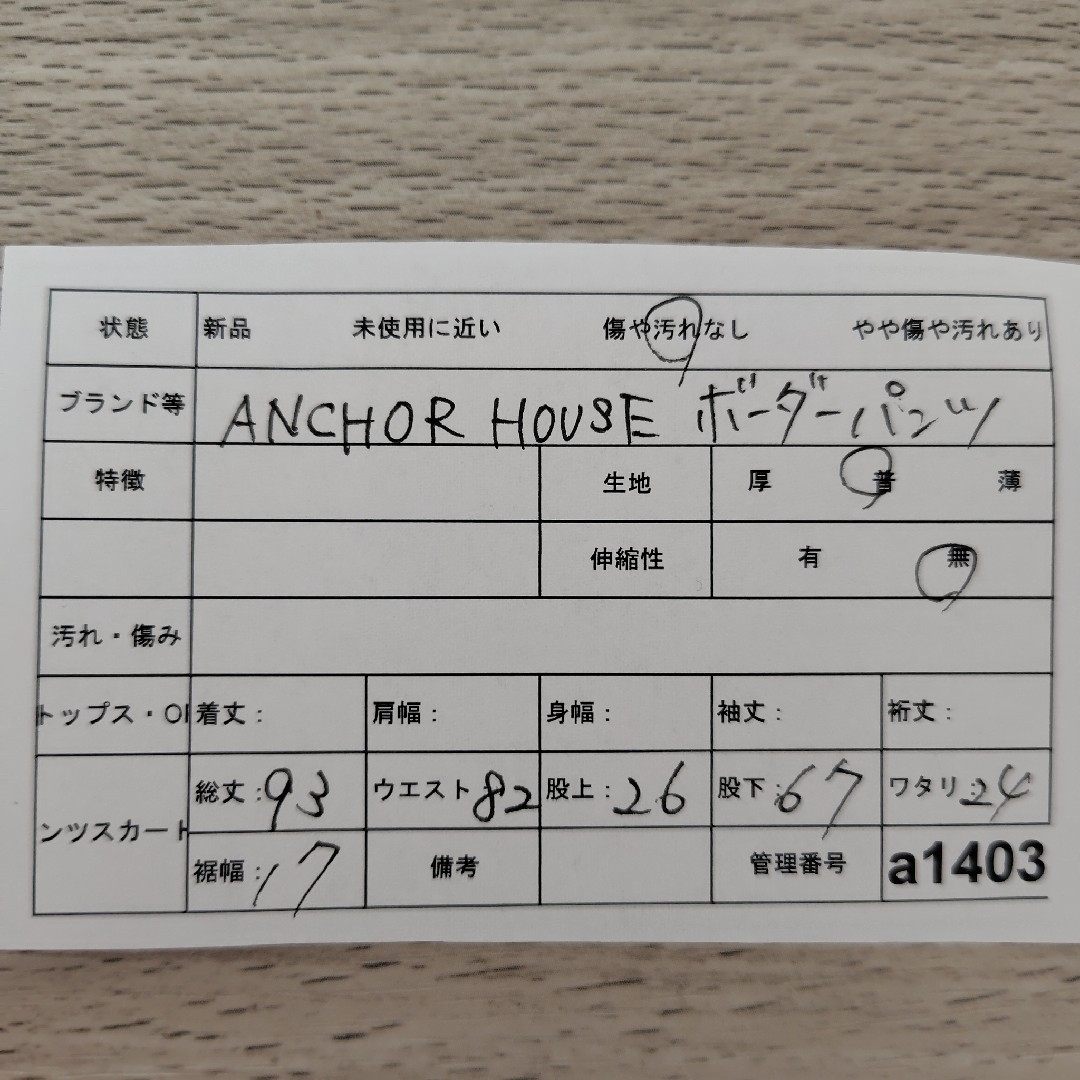 状態 新品 未使用に近い 傷や汚れなし やや傷や汚れあり
ブランド等 ANCHOR HOUSE ボーダーパンツ
特徴 生地 厚 普 薄
伸縮性 有 無
汚れ・傷み
トップス・O 着丈： 肩幅： 身幅： 袖丈： 裄丈：
ンツスカート 総丈：93 ウエスト 82 股上：26 股下：67 ワタリ：24
裾幅：17 備考 管理番号 a1403